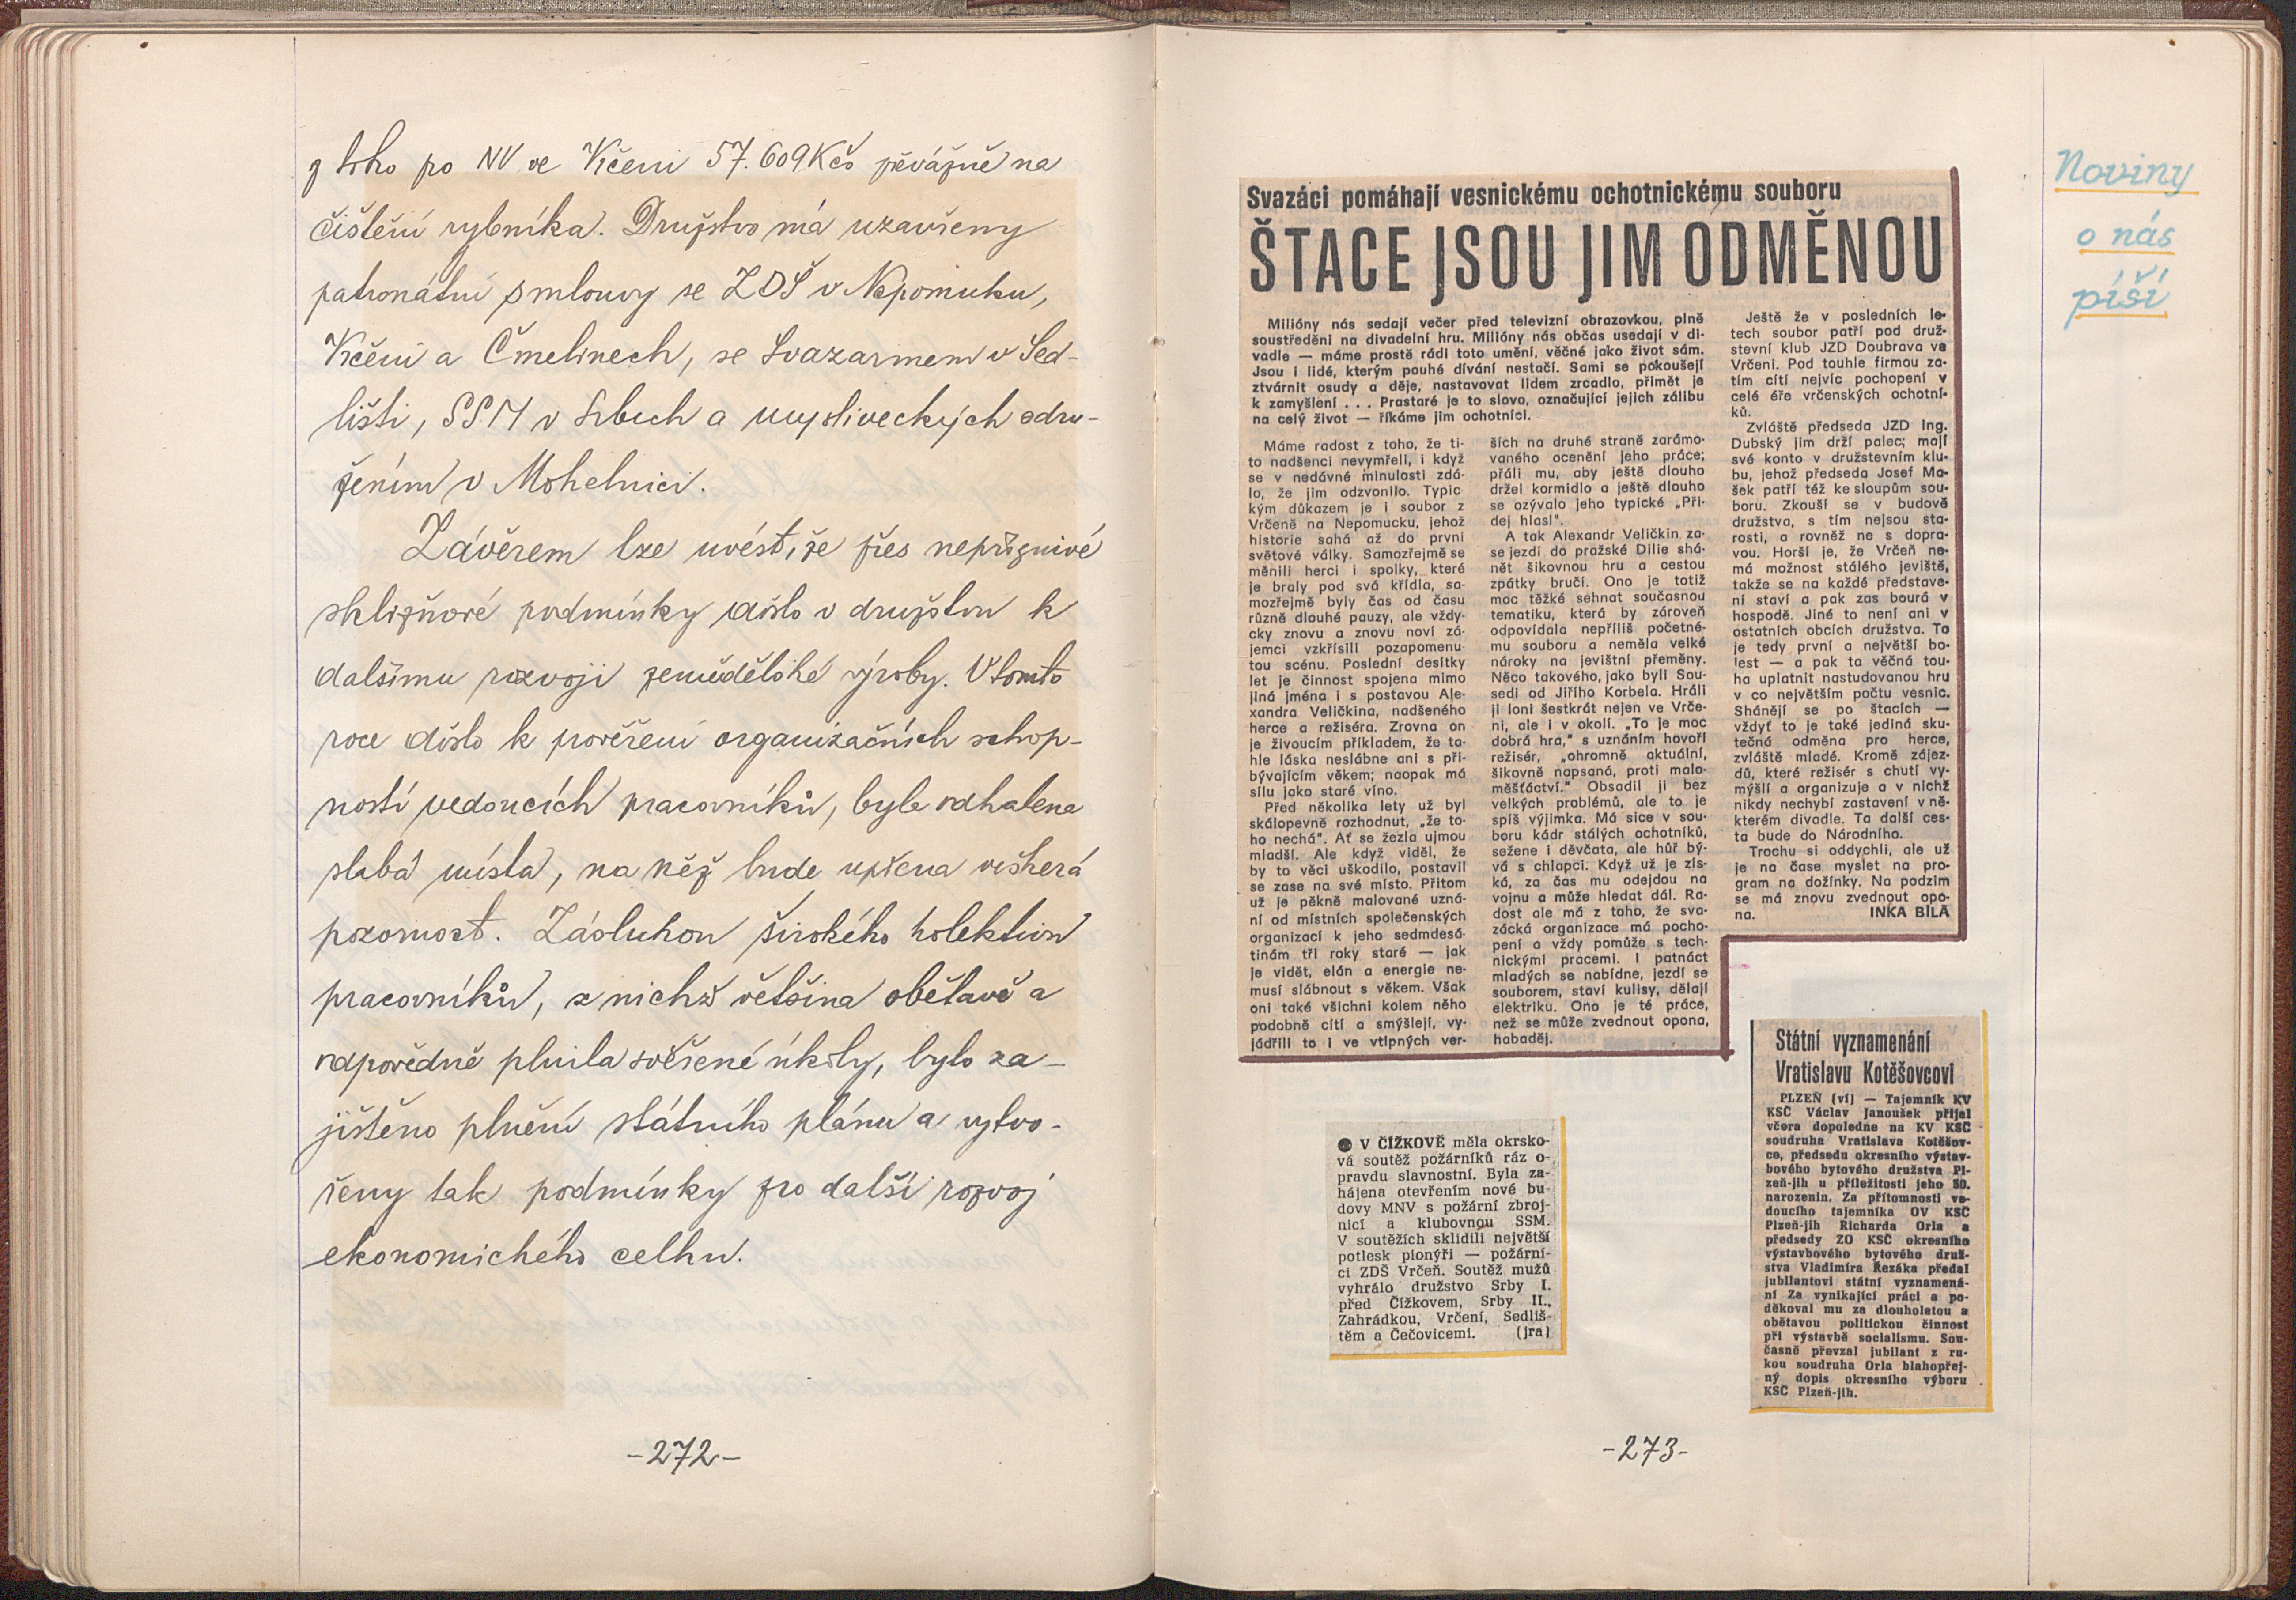 z toho po NV ve Vrčeni 57.609Kčs převážně na
čištění rybníka. Družstvo má uzavřeny
patronátní smlouvy se ZDŠ v Nepomuku,
Vrčeni a Čmelinech, se Svazarmem v Sed-
lišti, SSM v Srbech a mysliveckých sdru-
žením v Mohelnici.
Závěrem lze uvést, že přes nepříznivé
sklizňové podmínky došlo v družstvu k
dalšímu rozvoji zemědělské výroby. V tomto
roce došlo k prověření organizačních schop-
ností vedoucích pracovníků, byla odhalena
slabá místa, na něž bude upřena veškerá
pozornost. Zásluhou širokého kolektivu
pracovníků, z nichž většina obětavě a
odpovědně plnila svěřené úkoly, bylo za-
jištěno plnění státního plánu a vytvo-
řeny tak podmínky pro další rozvoj
ekonomického celku.
-272-
Noviny
o nás
píší
Svazáci pomáhají vesnickému ochotnickému souboru
ŠTACE JSOU JIM ODMĚNOU
Milióny nás sedají večer před televizní obrazovkou, plně
soustředěni na divadelní hru. Milióny nás občas usedají v di-
vadle — máme prostě rádi toto umění, věčné jako život sám.
Jsou i lidé, kterým pouhé dívání nestačí. Sami se pokoušejí
ztvárnit osudy a děje, nastavovat lidem zrcadlo, přimět je
k zamyšlení . . . Prastaré je to slovo, označující jejich zálibu
na celý život — říkáme jim ochotníci.
Máme radost z toho, že ti-
to nadšenci nevymřeli, i když
se v nedávné minulosti zdá-
lo, že jim odzvonilo. Typic-
kým důkazem je i soubor z
Vrčeně na Nepomucku, jehož
historie sahá až do první
světové války. Samozřejmě se
měnili herci i spolky, které
je braly pod svá křídla, sa-
mozřejmě byly čas od času
různě dlouhé pauzy, ale vždy-
cky znovu a znovu noví zá-
jemci vzkřísili pozapomenu-
tou scénu. Poslední desítky
let je činnost spojena mimo
jiná jména i s postavou Ale-
xandra Veličkina, nadšeného
herce a režiséra. Zrovna on
je živoucím příkladem, že ta-
hle láska neslábne ani s při-
bývajícím věkem; naopak má
sílu jako staré víno.
Před několika lety už byl
skálopevně rozhodnut, „že to-
ho nechá“. Ať se žezla ujmou
mladší. Ale když viděl, že
by to věci uškodilo, postavil
se zase na své místo. Přitom
už je pěkně malované uzná-
ní od místních společenských
organizací k jeho sedmdesá-
tinám tři roky staré — jak
je vidět, elán a energie ne-
musí slábnout s věkem. Však
oni také všichni kolem něho
podobně cítí a smýšlejí, vy-
jádřili to i ve vtipných ver-
ších na druhé straně zarámo-
vaného ocenění jeho práce;
přáli mu, aby ještě dlouho
držel kormidlo a ještě dlouho
se ozývalo jeho typické „Při-
dej hlas!“.
A tak Alexandr Veličkin za-
se jezdí do pražské Dilie shá-
nět šikovnou hru a cestou
zpátky bručí. Ono je totiž
moc těžké sehnat současnou
tematiku, která by zároveň
odpovídala nepříliš početné-
mu souboru a neměla velké
nároky na jevištní přeměny.
Něco takového, jako byli Sou-
sedi od Jiřího Korbela. Hráli
ji loni šestkrát nejen ve Vrče-
ni, ale i v okolí. „To je moc
dobrá hra,“ s uznáním hovoří
režisér, „ohromně aktuální,
šikovně napsaná, proti malo-
měšťáctví.“ Obsadil ji bez
velkých problémů, ale to je
spíš výjimka. Má sice v sou-
boru kádr stálých ochotníků,
sežene i děvčata, ale hůř bý-
vá s chlapci. Když už je zís-
ká, za čas mu odejdou na
vojnu a může hledat dál. Ra-
dost ale má z toho, že sva-
zácká organizace má pocho-
pení a vždy pomůže s tech-
nickými pracemi. I patnáct
mladých se nabídne, jezdí se
souborem, staví kulisy, dělají
elektriku. Ono je té práce,
než se může zvednout opona,
habaděj.
Ještě že v posledních le-
tech soubor patří pod druž-
stevní klub JZD Doubrava ve
Vrčeni. Pod touhle firmou za-
tím cítí nejvíc pochopení v
celé éře vrčenských ochotní-
ků.
Zvláště předseda JZD Ing.
Dubský jim drží palec; mají
své konto v družstevním klu-
bu, jehož předseda Josef Ma-
šek patří též ke sloupům sou-
boru. Zkouší se v budově
družstva, s tím nejsou sta-
rosti, a rovněž ne s dopra-
vou. Horší je, že Vrčeň ne-
má možnost stálého jeviště,
takže se na každé představe-
ní staví a pak zas bourá v
hospodě. Jiné to není ani v
ostatních obcích družstva. To
je tedy první a největší bo-
lest — a pak ta věčná tou-
ha uplatnit nastudovanou hru
v co největším počtu vesnic.
Shánějí se po štacích —
vždyť to je také jediná sku-
tečná odměna pro herce,
zvláště mladé. Kromě zájez-
dů, které režisér s chutí vy-
mýšlí a organizuje a v nichž
nikdy nechybí zastavení v ně-
kterém divadle. Ta další ces-
ta bude do Národního.
Trochu si oddychli, ale už
je na čase myslet na pro-
gram na dožínky. Na podzim
se má znovu zvednout opo-
na. INKA BÍLÁ
● V ČÍŽKOVĚ měla okrsko-
vá soutěž požárníků ráz o-
pravdu slavnostní. Byla za-
hájena otevřením nové bu-
dovy MNV s požární zbroj-
nicí a klubovnou SSM.
V soutěžích sklidili největší
potlesk pionýři — požární-
ci ZDŠ Vrčeň. Soutěž mužů
vyhrálo družstvo Srby I.
před Čížkovem, Srby II.,
Zahrádkou, Vrčení, Sedliš-
těm a Čečovicemi. (jra)
Státní vyznamenání
Vratislavu Kotěšovcovi
PLZEŇ (ví) — Tajemník KV
KSČ Václav Janoušek přijal
včera dopoledne na KV KSČ
soudruha Vratislava Kotěšov-
ce, předsedu okresního výstav-
bového bytového družstva Pl-
zeň-jih u příležitosti jeho 50.
narozenin. Za přítomnosti ve-
doucího tajemníka OV KSČ
Plzeň-jih Richarda Orla a
předsedy ZO KSČ okresního
výstavbového bytového druž-
stva Vladimíra Řezáka předal
jubilantovi státní vyznamená-
ní Za vynikající práci a po-
děkoval mu za dlouholetou a
obětavou politickou činnost
při výstavbě socialismu. Sou-
časně převzal jubilant z ru-
kou soudruha Orla blahopřej-
ný dopis okresního výboru
KSČ Plzeň-jih.
-273-